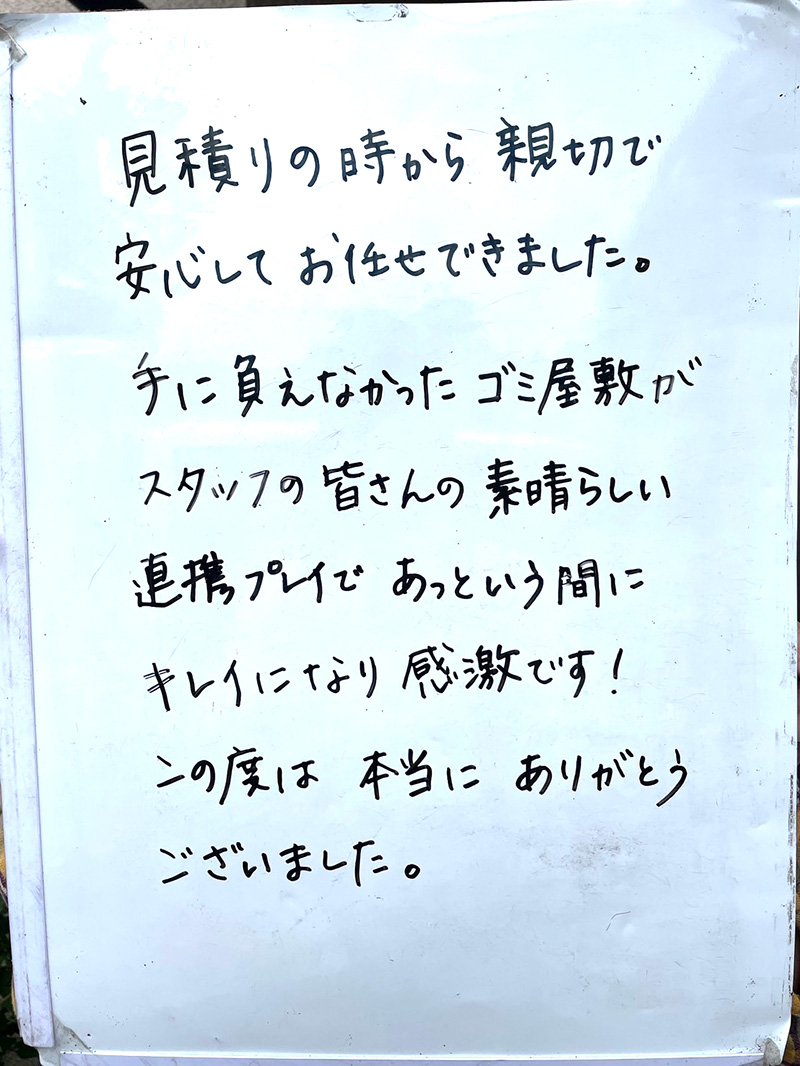 見積りの時から 親切で
安心して お任せできました。
手に負えなかった ゴミ屋敷が
スタッフの 皆さんの 素晴らしい
連携プレイで あっという間に
キレイになり 感激です!
この度は 本当に ありがとう
ございました。